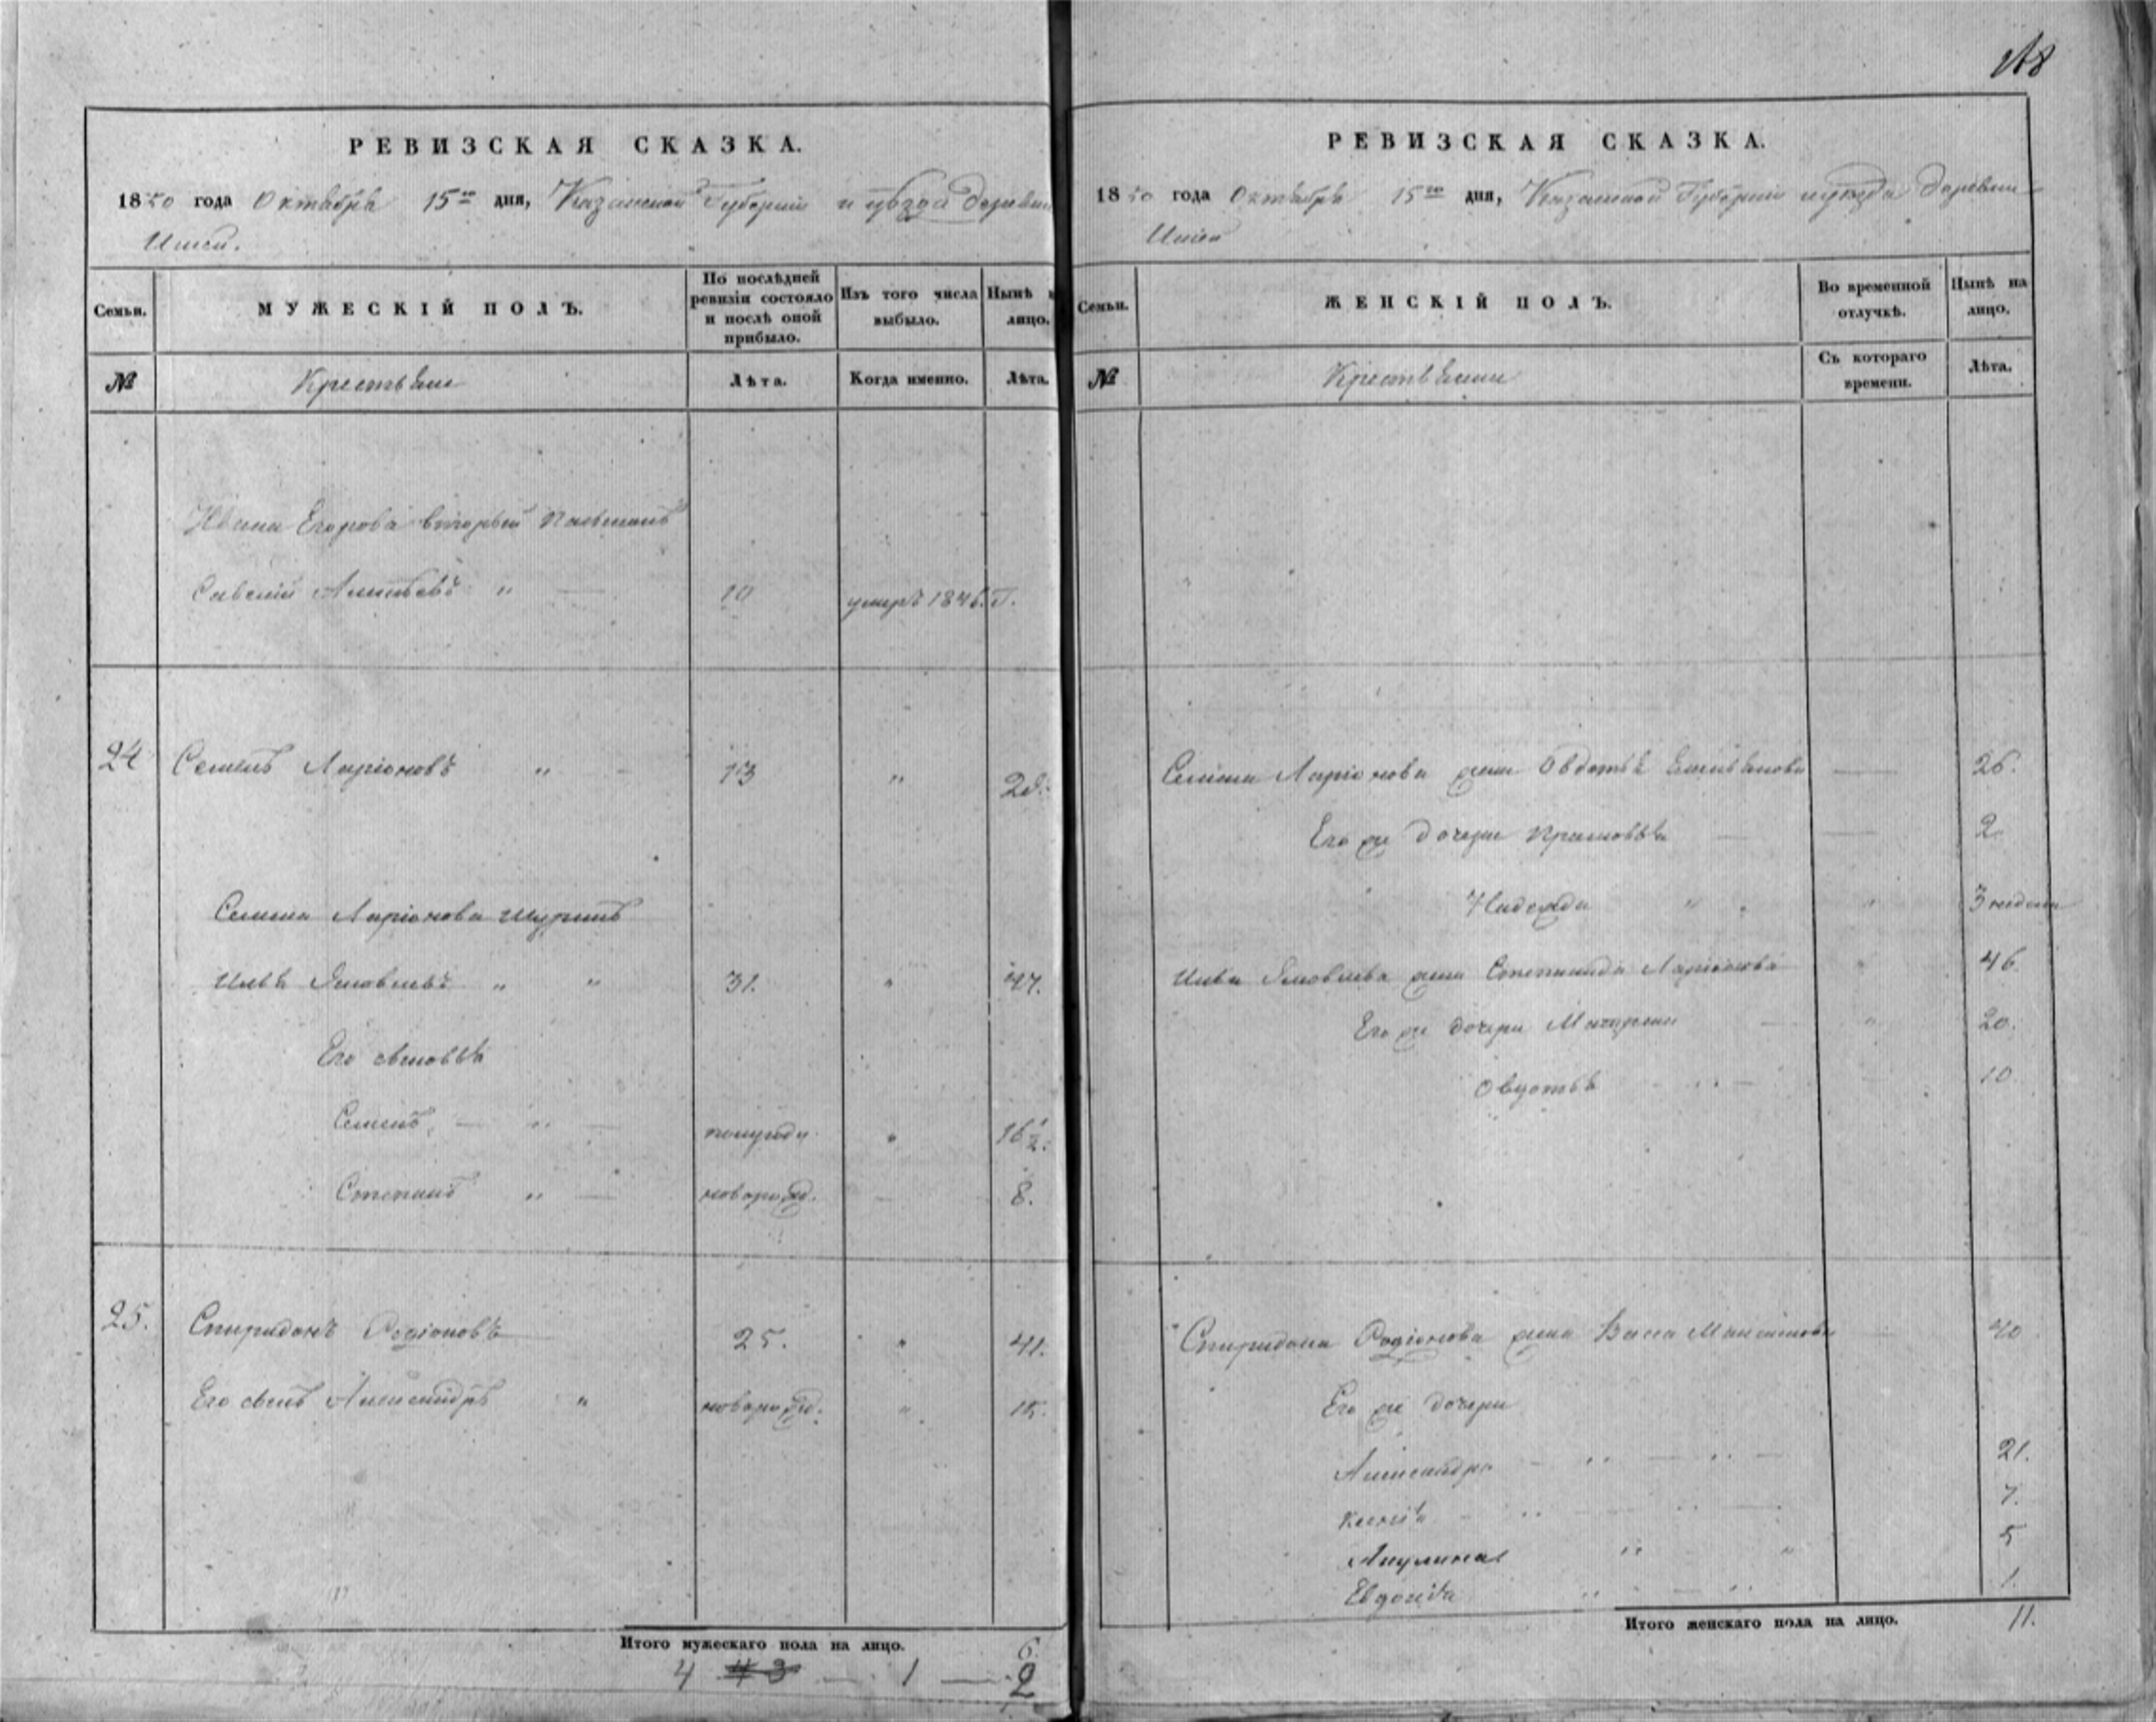 118
РЕВИЗСКАЯ СКАЗКА.
1850 года Октября 15го дня, Казанской Губерніи и уѣзда деревни
Ишеи.
Семьи.
МУЖЕСКІЙ ПОЛЪ.
По послѣдней ревизіи состояло и послѣ оной прибыло.
Изъ того числа выбыло.
Нынѣ на лицо.
№
Крестьяне
Лѣта.
Когда именно.
Лѣта.
Ивана Егорова вторый
10 умеръ 1846. Г.
24 Семенъ Ларіоновъ " 13 " 29.
Семена Ларіонова шуринъ
Яковлевъ " " 31. " 47.
Его сыновья
Семенъ — " — полугоду " 16 1/2.
Степанъ " — новорожд. — 8.
25. Спиридонъ Родіоновъ 25. " 41.
Его сынъ Александръ " новорожд. " 15.
Итого мужескаго пола на лицо. 6
4 — 1 — 2
РЕВИЗСКАЯ СКАЗКА.
1850 года Октября 15го дня, Казанской Губерніи и уѣзда деревни
Ишеи
Семьи.
ЖЕНСКІЙ ПОЛЪ.
Во временной отлучкѣ.
Нынѣ на лицо.
№
Крестьяне
Съ котораго времени.
Лѣта.
Семена Ларіонова жена Овдотья Емельянова — 26.
Его же дочери Прасковья — — 2.
Надежда " " " 3 недели
Яковлева жена Степанида Ларіонова " 46.
Его же дочери — " 20.
Овдотья — " — 10.
Спиридона Родіонова жена Васса Максимова 40
Его же дочери
Александра — " — " — 21.
Ксенія — " — " — 7.
Акулина " " 5
Евдокія " — " 1.
Итого женскаго пола на лицо. 11.